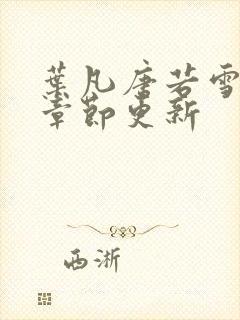 葉凡唐若雪
章節更新
西淅